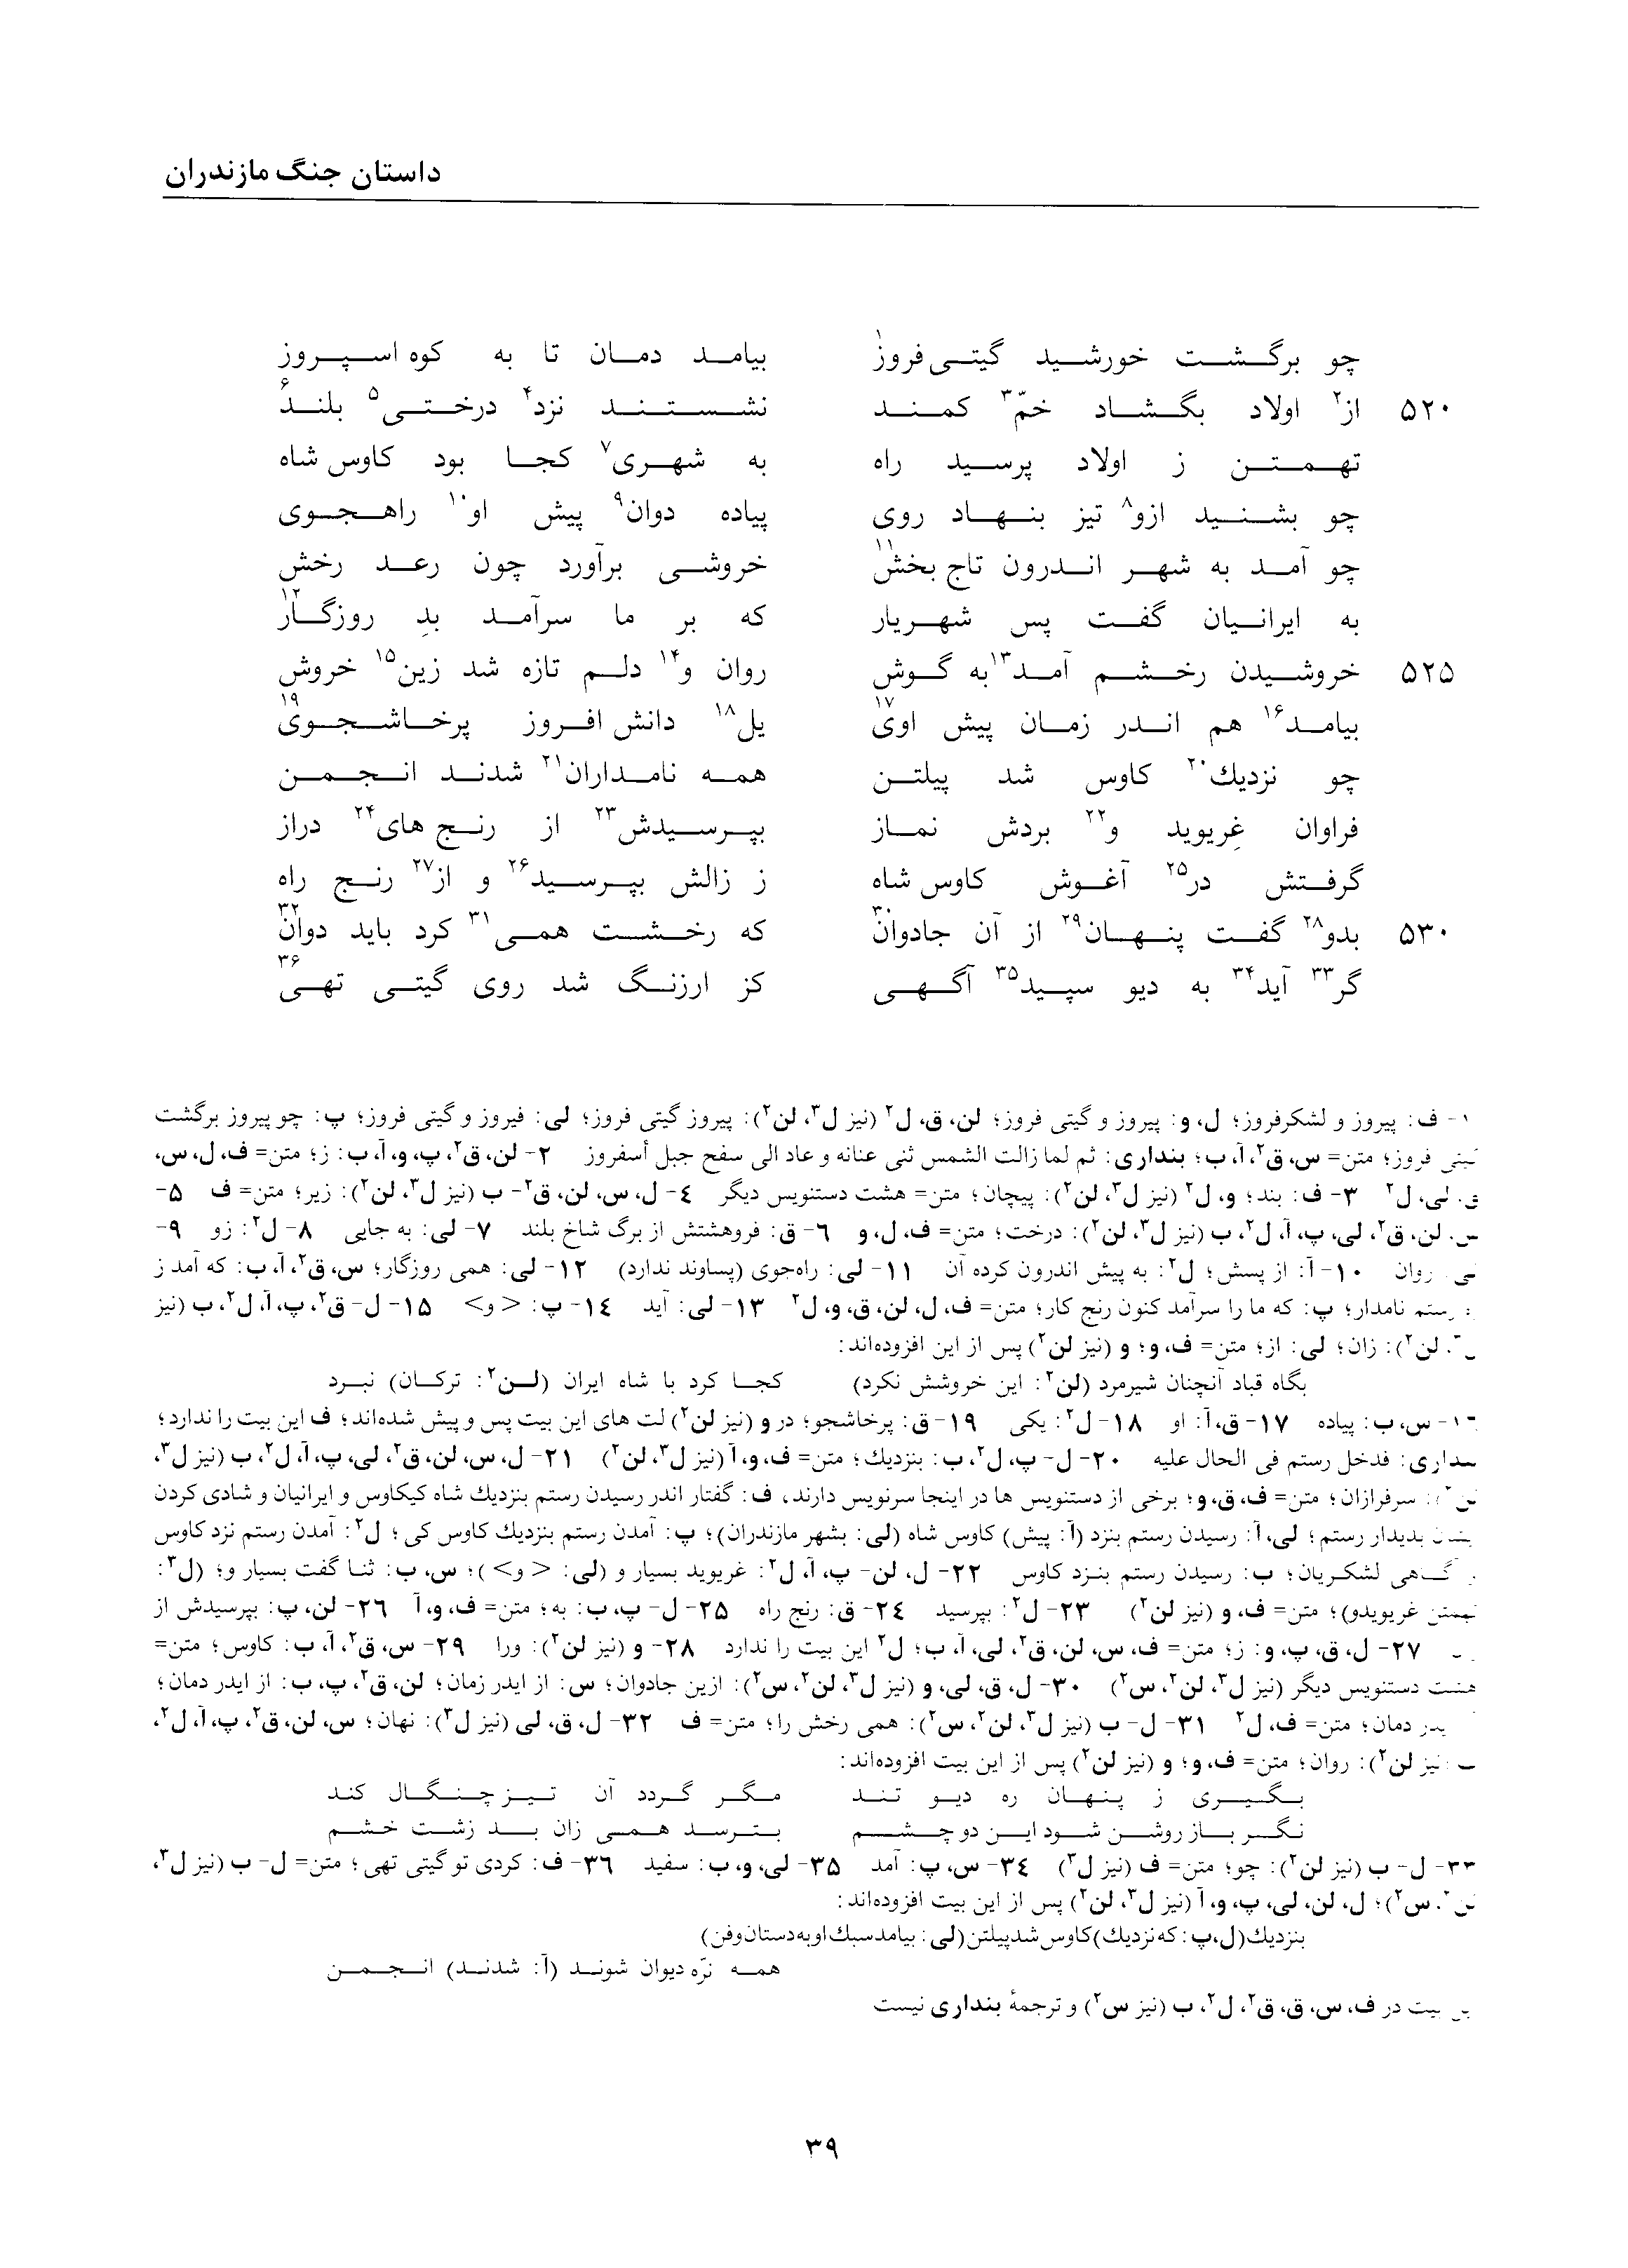 داستان جنگ مازندران
چو برگشت خورشید گیتی فروز۱ بیامد دمان تا به کوه اسپروز
۵۲۰ از۲ اولاد بگشاد خمّ۳ کمند نشستند نزد۴ درختی۵ بلند۶
تهمتن ز اولاد پرسید راه به شهری۷ کجا بود کاوس شاه
چو بشنید ازو۸ تیز بنهاد روی پیاده دوان۹ پیش او۱۰ راهجوی
چو آمد به شهر اندرون تاج بخش۱۱ خروشی برآورد چون رعد رخش
به ایرانیان گفت پس شهریار که بر ما سرآمد بدِ روزگار۱۲
۵۲۵ خروشیدن رخشم آمد۱۳ به گوش روان و۱۴ دلم تازه شد زین۱۵ خروش
بیامد۱۶ هم اندر زمان پیش اوی۱۷ یل۱۸ دانش افروز پرخاشجوی۱۹
چو نزدیك۲۰ کاوس شد پیلتن همه نامداران۲۱ شدند انجمن
فراوان غریوید و۲۲ بردش نماز بپرسیدش۲۳ از رنج های۲۴ دراز
گرفتش در۲۵ آغوش کاوس شاه ز زالش بپرسید۲۶ و از۲۷ رنج راه
۵۳۰ بدو۲۸ گفت پنهان۲۹ از آن جادوان۳۰ که رخشت همی۳۱ کرد باید دوان۳۲
گر۳۳ آید۳۴ به دیو سپید۳۵ آگهی کز ارزنگ شد روی گیتی تهی۳۶
۱- ف: پیروز و لشکرفروز؛ ل، و: پیروز و گیتی فروز؛ لن، ق، ل۲ (نیز ل۳، لن۲): پیروز گیتی فروز؛ لی: فیروز و گیتی فروز؛ پ: چو پیروز برگشت
گیتی فروز؛ متن= س، ق۲، آ، ب؛ بنداری: ثم لما زالت الشمس ثنی عنانه و عاد الی سفح جبل أسفروز ۲- لن، ق۲، پ، و، آ، ب: ز؛ متن= ف، ل، س،
ق، لی، ل۲ ۳- ف: بند؛ و، ل۲ (نیز ل۳، لن۲): پیچان؛ متن= هشت دستنویس دیگر ٤- ل، س، لن، ق۲- ب (نیز ل۳، لن۲): زیر؛ متن= ف ۵-
س، لن، ق۲، لی، پ، آ، ل۲، ب (نیز ل۳، لن۲): درخت؛ متن= ف، ل، و ٦- ق: فروهشتش از برگ شاخ بلند ۷- لی: به جایی ۸- ل۲: زو ۹-
لی: روان ۱۰- آ: از پسش؛ ل۲: به پیش اندرون کرده آن ۱۱- لی: راه‌جوی (پساوند ندارد) ۱۲- لی: همی روزگار؛ س، ق۲، آ، ب: که آمد ز
رستم نامدار؛ پ: که ما را سرآمد کنون رنج کار؛ متن= ف، ل، لن، ق، و، ل۲ ۱۳- لی: آید ۱٤- پ: <و> ۱۵- ل- ق۲، پ، آ، ل۲، ب (نیز
لن۲): زان؛ لی: از؛ متن= ف، و؛ و (نیز لن۲) پس از این افزوده‌اند:
بگاه قباد آنچنان شیرمرد (لن۲: این خروشش نکرد) کجا کرد با شاه ایران (لن۲: ترکان) نبرد
۱٦- س، ب: پیاده ۱۷- ق، آ: او ۱۸- ل۲: یکی ۱۹- ق: پرخاشجو؛ در و (نیز لن۲) لت های این بیت پس و پیش شده‌اند؛ ف این بیت را ندارد؛
بنداری: فدخل رستم فی الحال علیه ۲۰- ل- پ، ل۲، ب: بنزدیك؛ متن= ف، و، آ (نیز ل۳، لن۲) ۲۱- ل، س، لن، ق۲، لی، پ، آ، ل۲، ب (نیز ل۳،
لن۲): سرفرازان؛ متن= ف، ق، و؛ برخی از دستنویس ها در اینجا سرنویس دارند، ف: گفتار اندر رسیدن رستم بنزدیك شاه کیکاوس و ایرانیان و شادی کردن
بدیدار رستم؛ لی، آ: رسیدن رستم بنزد (آ: پیش) کاوس شاه (لی: بشهر مازندران)؛ پ: آمدن رستم بنزدیك کاوس کی؛ ل۲: آمدن رستم نزد کاوس
لشکریان؛ ب: رسیدن رستم بنزد کاوس ۲۲- ل، لن- پ، آ، ل۲: غریوید بسیار و (لی: <و>)؛ س، ب: ثنا گفت بسیار و؛ (ل۳:
تهمتن غریویدو)؛ متن= ف، و (نیز لن۲) ۲۳- ل۲: بپرسید ۲٤- ق: رنج راه ۲۵- ل- پ، ب: به؛ متن= ف، و، آ ۲٦- لن، پ: بپرسیدش از
۲۷- ل، ق، پ، و: ز؛ متن= ف، س، لن، ق۲، لی، آ، ب؛ ل۲ این بیت را ندارد ۲۸- و (نیز لن۲): ورا ۲۹- س، ق۲، آ، ب: کاوس؛ متن=
هشت دستنویس دیگر (نیز ل۳، لن۲، س۲) ۳۰- ل، ق، لی، و (نیز ل۳، لن۲، س۲): ازین جادوان؛ س: از ایدر زمان؛ لن، ق۲، پ، ب: از ایدر دمان؛
دمان؛ متن= ف، ل۲ ۳۱- ل- ب (نیز ل۳، لن۲، س۲): همی رخش را؛ متن= ف ۳۲- ل، ق، لی (نیز ل۳): نهان؛ س، لن، ق۲، پ، آ، ل۲،
(نیز لن۲): روان؛ متن= ف، و؛ و (نیز لن۲) پس از این بیت افزوده‌اند:
بگیری ز پنهان ره دیو تند مگر گردد آن تیزچنگال کند
نگر باز روشن شود این دو چشم بترسد همی زان بد زشت خشم
۳۳- ل- ب (نیز لن۲): چو؛ متن= ف (نیز ل۳) ۳٤- س، پ: آمد ۳۵- لی، و، ب: سفید ۳٦- ف: کردی تو گیتی تهی؛ متن= ل- ب (نیز ل۳،
لن۲، س۲)؛ ل، لن، لی، پ، و، آ (نیز ل۳، لن۲) پس از این بیت افزوده‌اند:
بنزدیك (ل، پ: که نزدیك) کاوس شد پیلتن (لی: بیامد سبك او به دستان و فن)
همه نرّه دیوان شوند (آ: شدند) انجمن
بیت در ف، س، ق، ق۲، ل۲، ب (نیز س۲) و ترجمهٔ بنداری نیست
۳۹